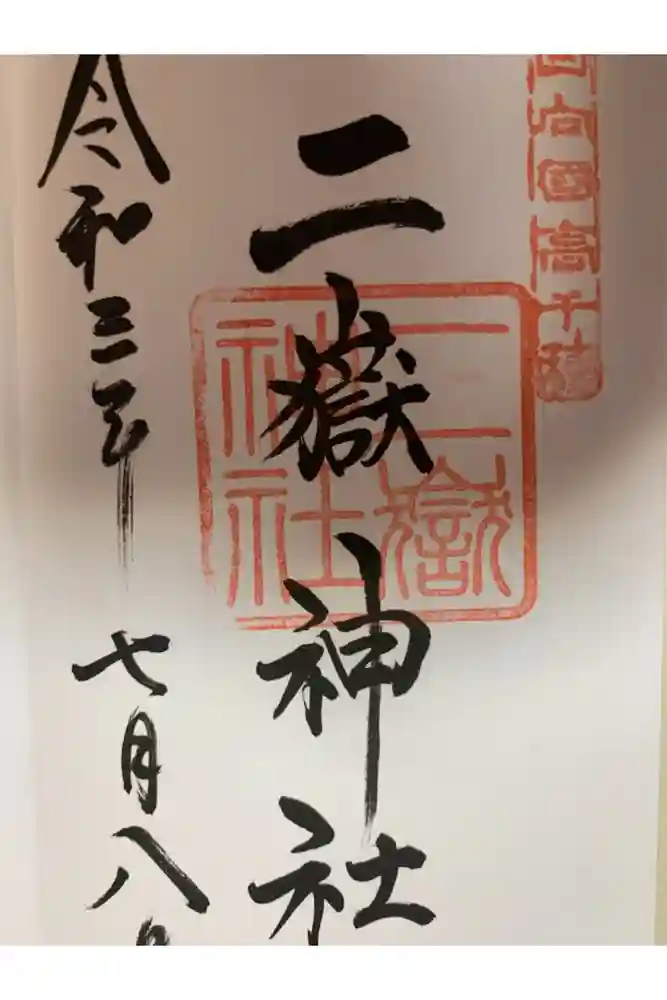 日向國高千穂
二嶽神社
二嶽神社
令和三年
七月八日